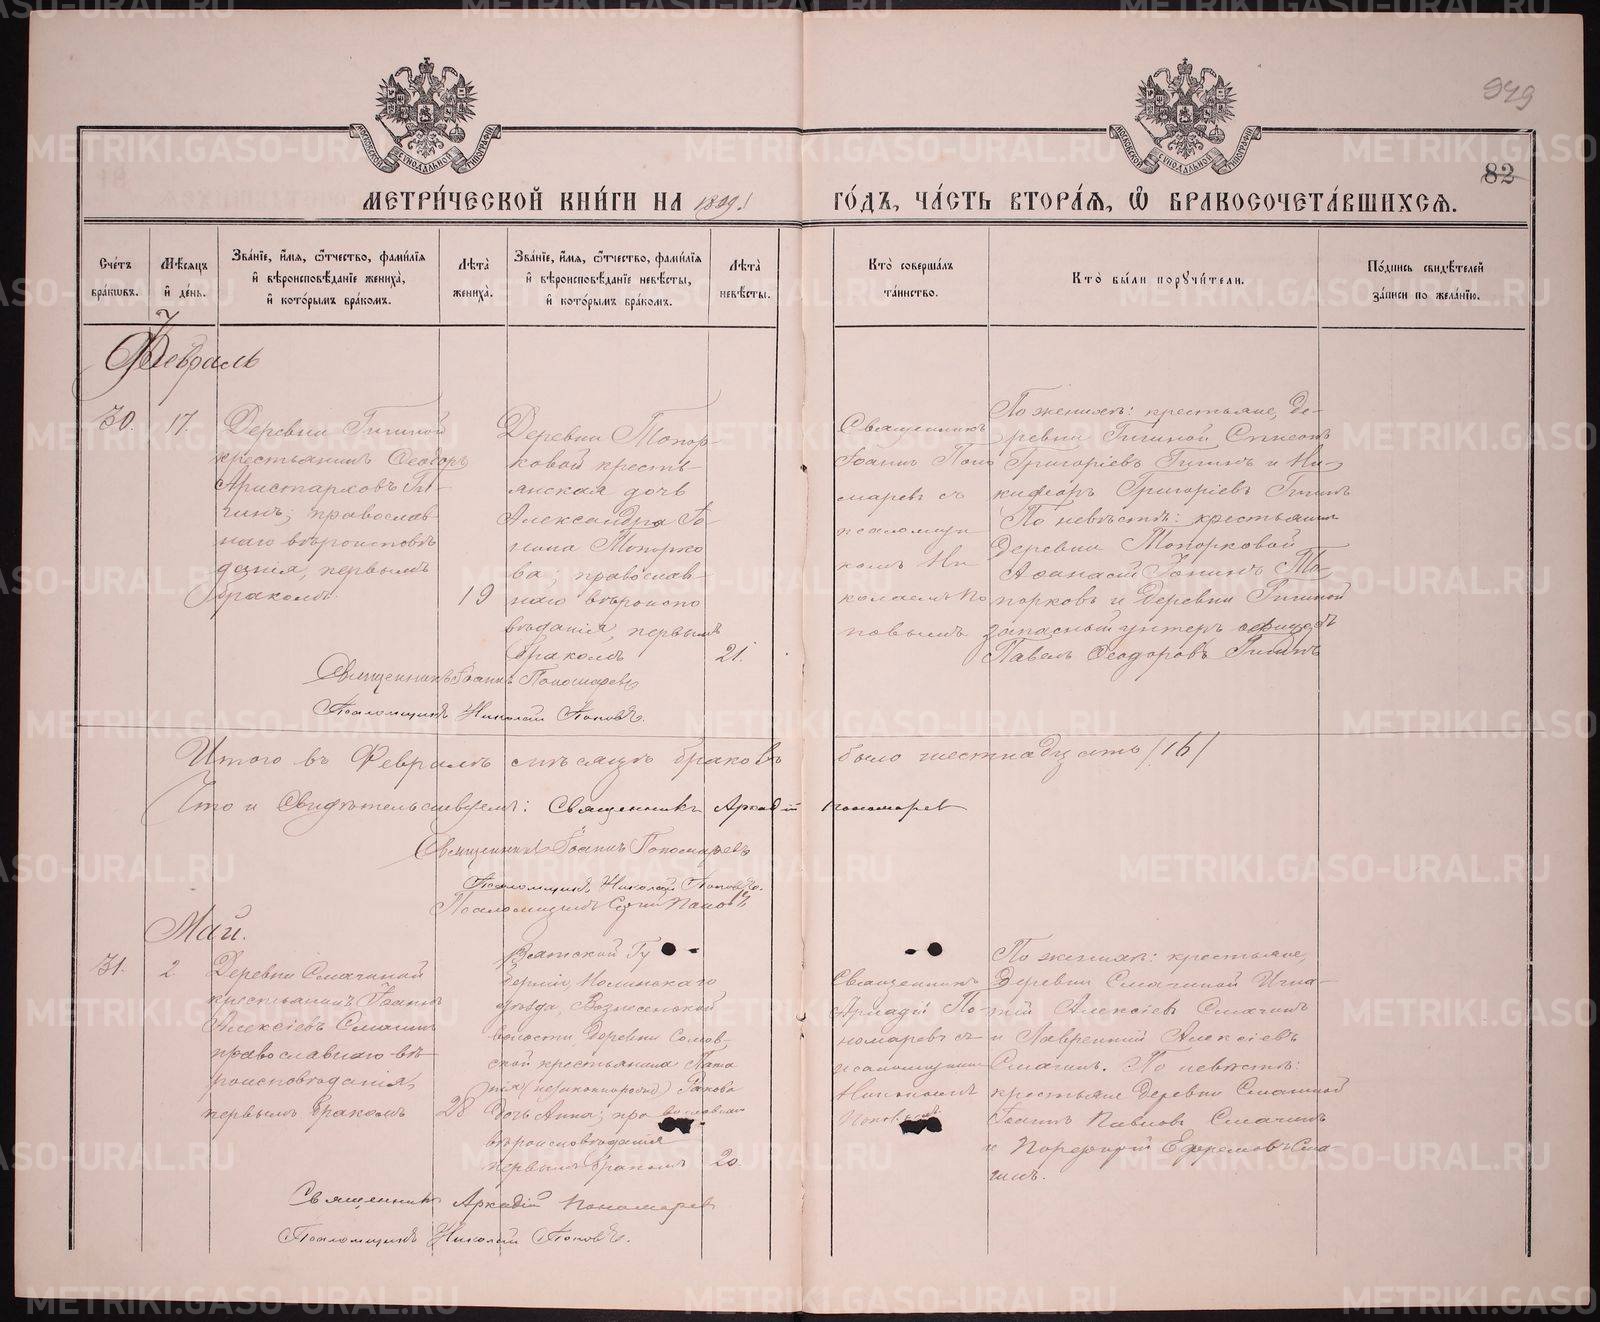 949
82
МЕТРИ́ЧЕСКОЙ КНИ́ГИ НА 1899 ГО́ДЪ, ЧА́СТЬ ВТОРА́Я, Ѽ БРАКОСОЧЕТА́ВШИХСЯ.
Сче́тъ бра́кѡвъ.
Мѣ́сяцъ и҆ де́нь.
Зва́нїе, и҆́мя, ѻ҆́тчество, фами́лїя и҆ вѣроисповѣ́данїе жениха̀, и҆ кото́рымъ бра́комъ.
Лѣ́та жениха̀.
Зва́нїе, и҆́мя, ѻ҆́тчество, фами́лїя и҆ вѣроисповѣ́данїе невѣ́сты, и҆ кото́рымъ бра́комъ.
Лѣ́та невѣ́сты.
Кто̀ соверша́лъ та́инство.
Кто̀ бы́ли поручи́тели.
По́дпись свидѣ́телей за́писи по жела́нїю.
Февраль
30.
17.
Деревни Гигиной
крестьянинъ Ѳеодоръ
Аристарховъ Ги-
гинъ; православ-
наго вѣроисповѣ
данія, первымъ
бракомъ.
19
Деревни Топор-
ковой кресть-
янская дочь
Александра Іо-
нина Топорко
ва; православ-
наго вѣроиспо
вѣданія, первымъ
бракомъ
21.
Священникъ
Іоаннъ Поно
маревъ съ
псаломщи
комъ Ни
колаемъ По
повымъ
По женихѣ: крестьяне, де-
ревни Гигиной Симеонъ
Григоріевъ Гигинъ и Ни-
кифоръ Григоріевъ Гигинъ
По невѣстѣ: крестьянинъ
деревни Топорковой
Аѳанасій Іонинъ То-
порковъ и деревни Гигиной
запасный унтеръ офицеръ
Павелъ Ѳеодоровъ Гигинъ
Священникъ Іоаннъ Пономаревъ
Псаломщикъ Николай Поповъ.
Итого въ Февралѣ мѣсяцѣ браковъ было шестнадцать /16/
Что и свидѣтельствуемъ: Священникъ Аркадій Пономарев
Священникъ Іоаннъ Пономаревъ
Псаломщикъ Николай Поповъ.
Псаломщикъ Сергій Поповъ
Май.
31.
2
Деревни Смагиной
крестьянинъ Іоаннъ
Алексіевъ Смагинъ
православнаго вѣ-
роисповѣданія,
первымъ бракомъ
28
Вятской Гу
берніи, Нолинскаго
уѣзда, Вознесенской
волости деревни
ской крестьянина
(незаконнорожд)
дочь Анна; православнаго
вѣроисповѣданія
первымъ бракомъ
20.
Священникъ
Аркадій По
номаревъ съ
псаломщикомъ
Николаемъ
Поповымъ
По женихѣ: крестьяне,
деревни Смагиной Игна-
тій Алексіевъ Смагинъ
и Лаврентій Алексіевъ
Смагинъ. По невѣстѣ:
крестьяне деревни Смагиной
Іоаннъ Павловъ Смагинъ
и Порфирій Ефремовъ Сма
гинъ.
Священникъ Аркадій Пономарев
Псаломщикъ Николай Поповъ.